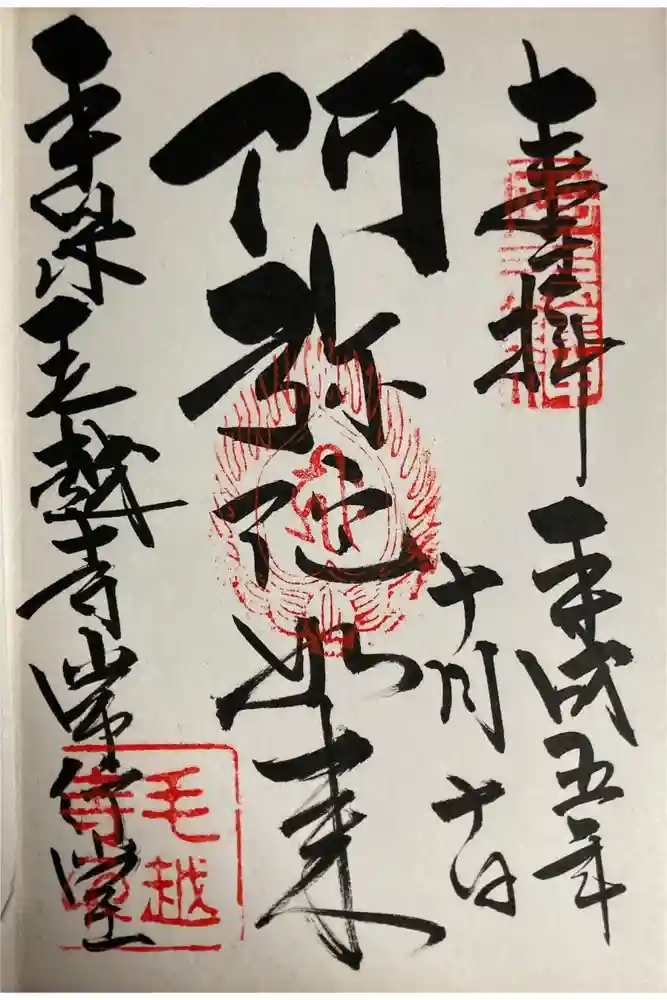 奉拝
平成五年
十月十日
阿弥陀如来
平泉毛越寺常行堂
毛越